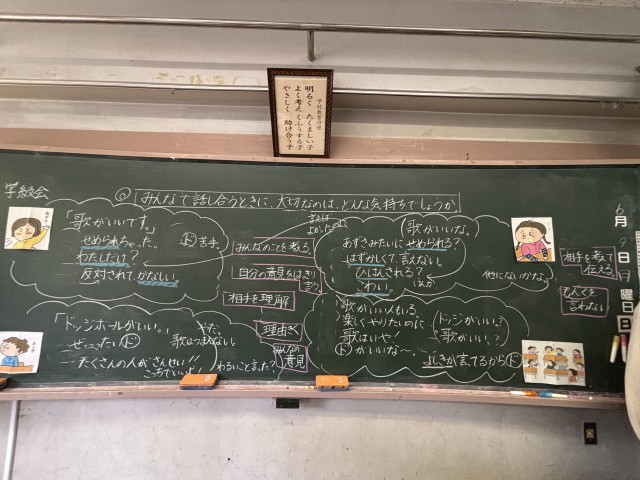 学校教育目標
明るく たくましい子
よく考え くふうする子
やさしく 助け合う子
学級会
◎ みんなで話し合うときに、大切なのは、どんな気持ちでしょうか。
「歌がいいです。」
せめられちゃった。
わたしだけ?
反対されて、かなしい。
ド苦手。
「ドッジボールがいい。」
ぜったいド
たくさんの人がさんせい!!
こっちでいいよ!
やだ。
歌はつまらない。
わるいこと言った?
よかった
みんなのことを考る
自分の意見をはっきり言う
相手を理解
理由きく
みんなの意見
歌がいいな。
あずさみたいにせめられる?
はずかしくて、言えない。
ひはんされる?
こわい。
他にないかな。
歌がいい人もいる。
楽しくやりたいのに
歌はいや
ドがいいな〜。
ドッジがいい?
歌がいい?
よしきが言ってるからド
相手を考て伝える
もんくを言わない
6月9日月曜日
日